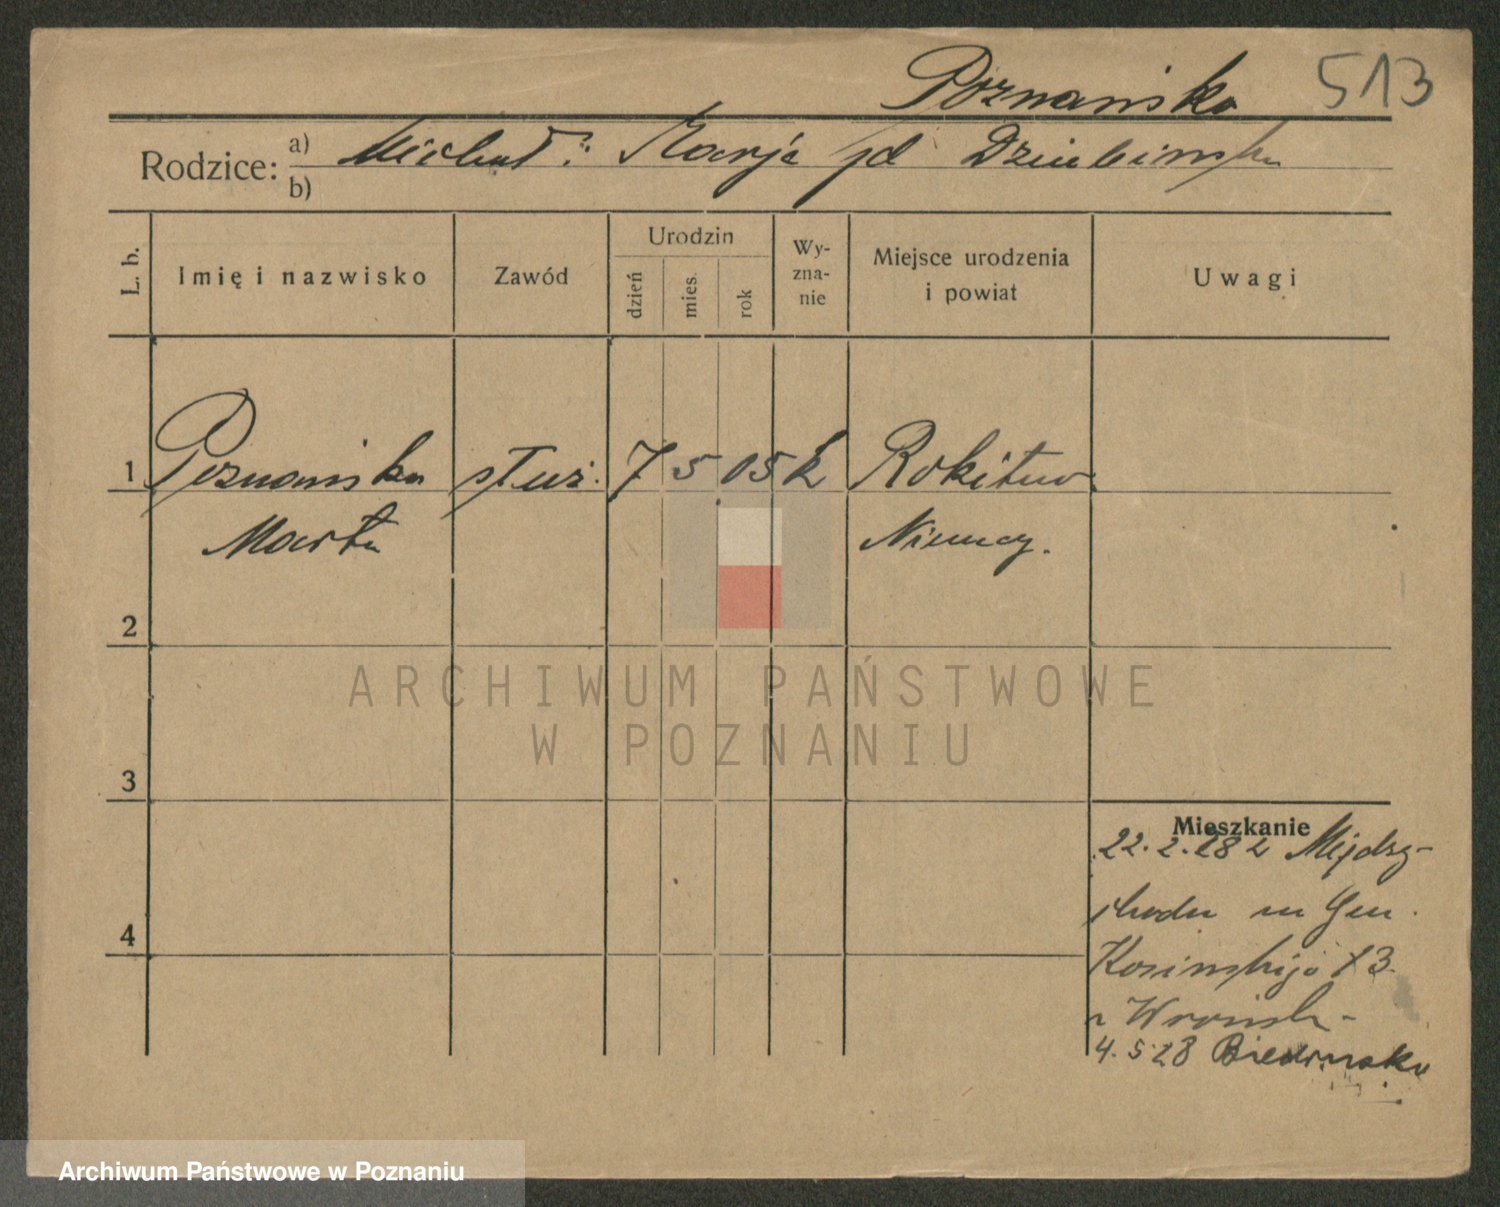 Poznańska 513
Rodzice: a) Michał i Marja zd Dziubińska
b)
L. b.
Imię i nazwisko
Zawód
Urodzin
dzień
mies.
rok
Wy-
zna-
nie
Miejsce urodzenia
i powiat
Uwagi
1 Poznańska służ. 7 5 05 k Rokitno
Marta Niemcy.
2
ARCHIWUM PAŃSTWOWE
W POZNANIU
3
Mieszkanie
22.2.28 z Między-
chodu
Kosińskiego 13
4
4.5.28
Archiwum Państwowe w Poznaniu